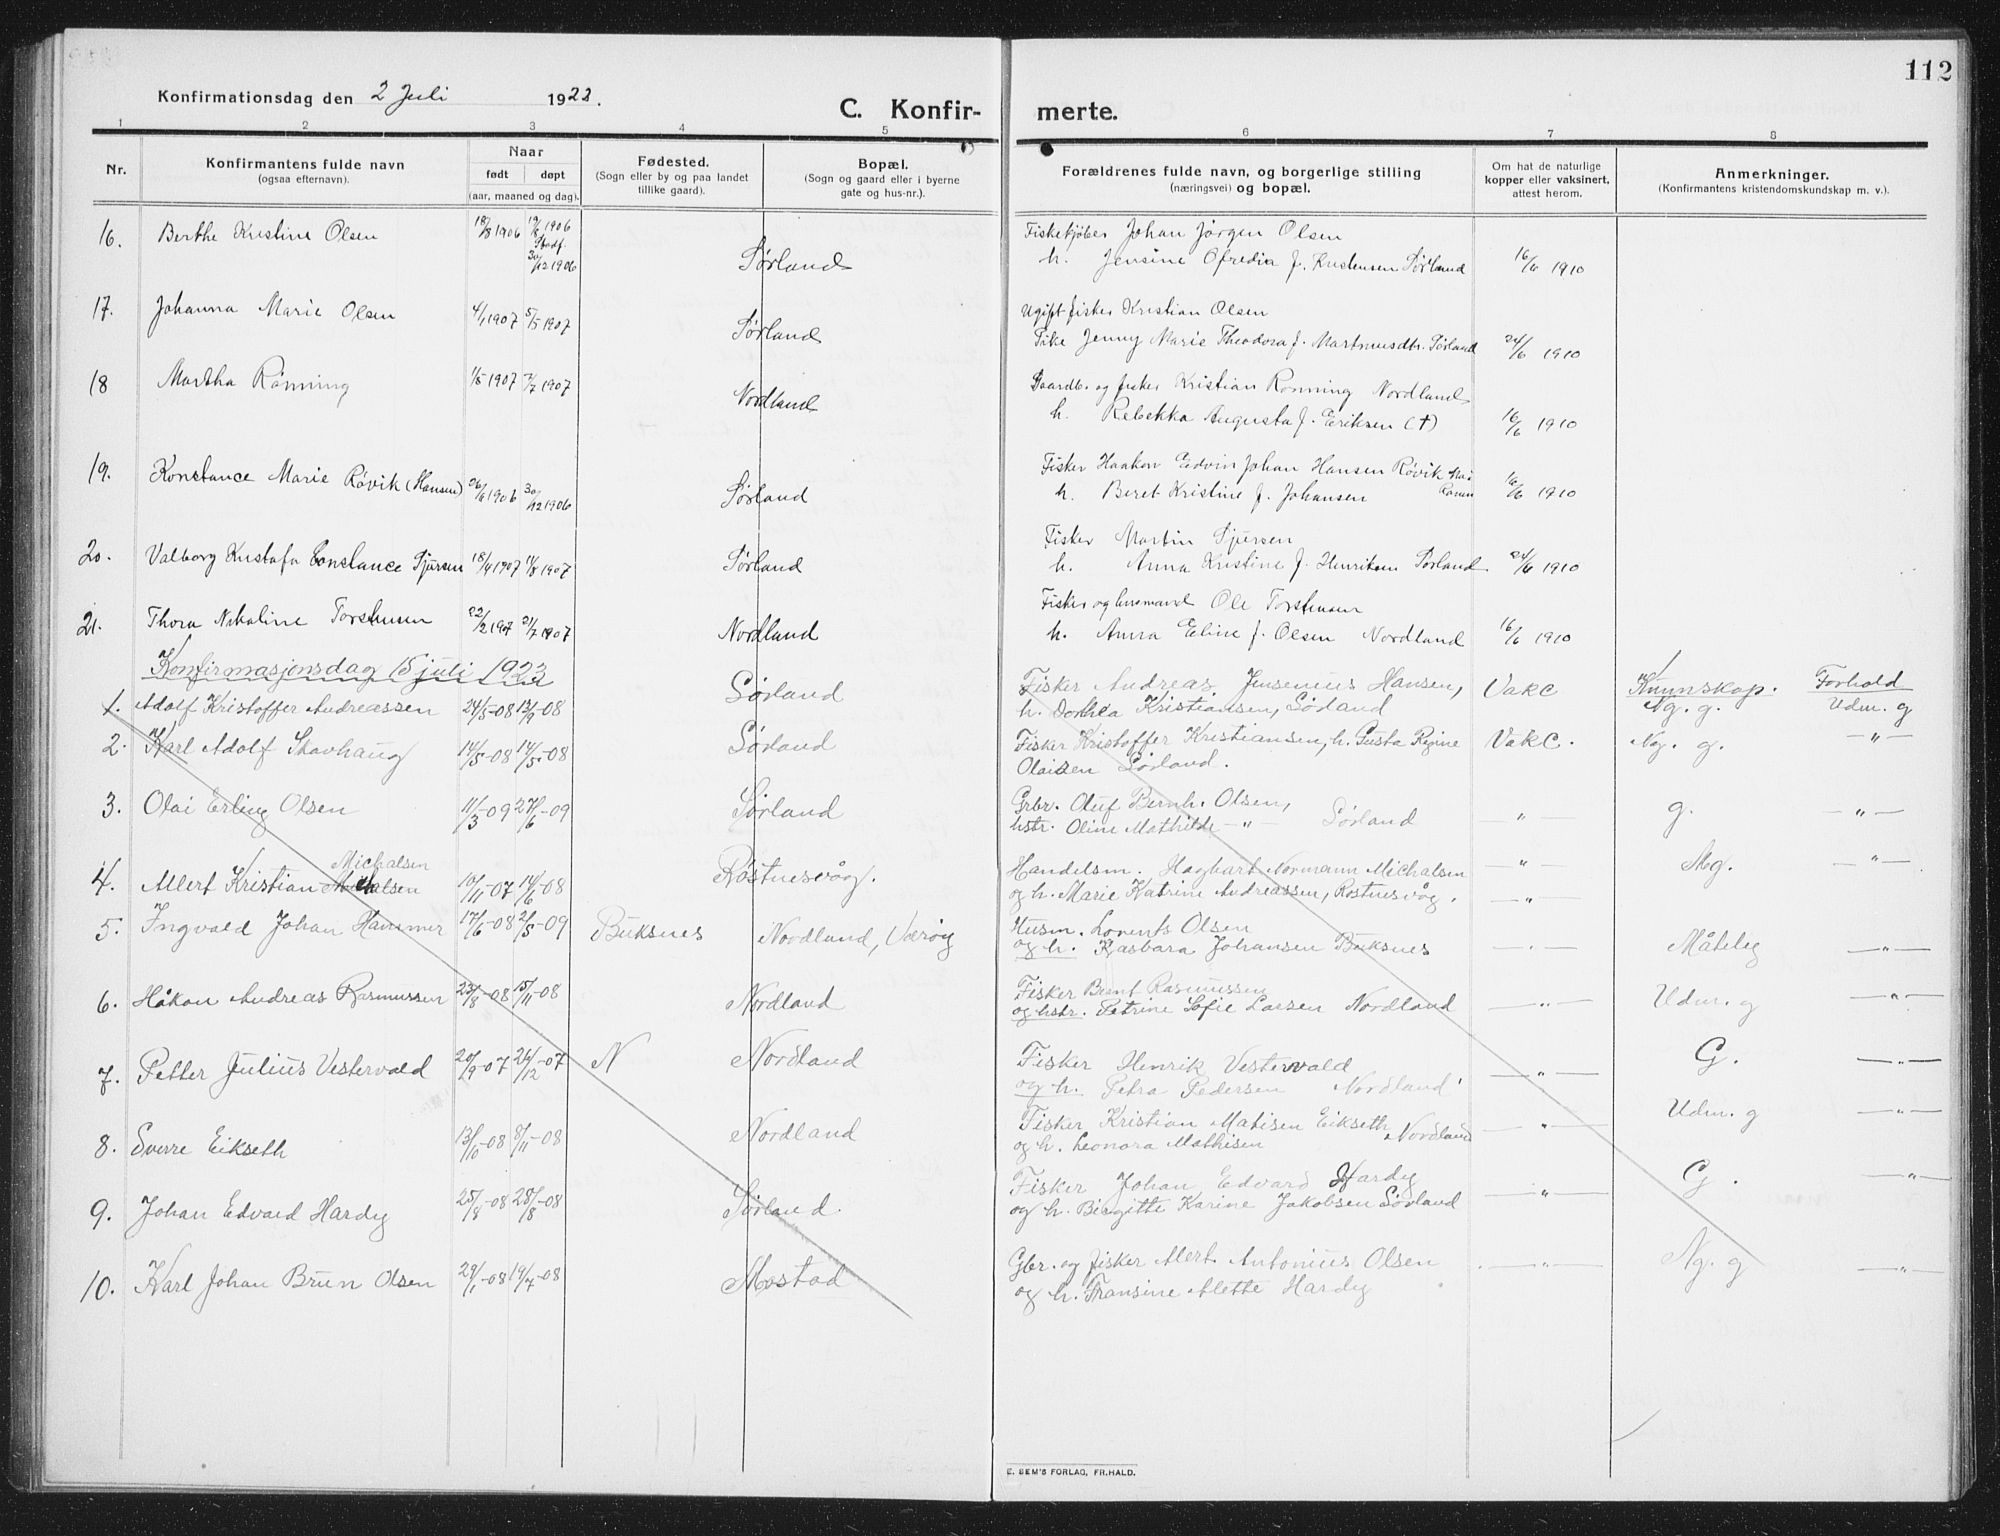 112
Konfirmationsdag den 2 Juli 1922.
C. Konfir- merte.
1 2 3 4 5 6 7 8
Nr.
Konfirmantens fulde navn
(ogsaa efternavn).
Naar
født døpt
(aar, maaned og dag).
Fødested.
(Sogn eller by og paa landet
tillike gaard).
Bopæl.
(Sogn og gaard eller i byerne
gate og hus-nr.).
Forældrenes fulde navn, og borgerlige stilling
(næringsvei) og bopæl.
Om hat de naturlige
kopper eller vaksinert,
attest herom.
Anmerkninger.
(Konfirmantens kristendomskundskap m. v.).
16. Berthe Kristine Olsen 18/8 1906 19/8 1906
Stadf.
30/12 1906
Sørland
Fiskekjøber Johan Jørgen Olsen
h. Jensine Ofredia f. Kristensen Sørland 16/6 1910
17. Johanna Marie Olsen 4/1 1907 5/5 1907 Sørland
Ugift fisker Kristian Olsen
Pike Jenny Marie Theodora f. Martinusdtr. Sørland 24/6 1910
18 Martha Rønning 1/5 1907 7/7 1907 Nordland
Gaardb. og fisker Kristian Rønning Nordland
h. Rebekka Augusta f. Eriksen (†) 16/6 1910
19. Konstance Marie Røvik (Hansen) 26/6 1906 30/12 1906 Sørland
Fisker Haakon Edvin Johan Hansen Røvik
h. Beret Kristine f. Johansen 16/6 1910
20. Valborg Kristofa Constance Sjursen 18/4 1907 11/8 1907 Sørland
Fisker Martin Sjursen
h. Anna Kristine f. Henriksen Sørland 24/6 1910
21. Thora Nikoline Torstensen 22/2 1907 21/7 1907 Nordland
Fisker og husmand Ole Torstensen
h. Anna Eline f. Olsen Nordland 16/6 1910
Konfirmasjonsdag 15 juli 1923
Kunnskap. Forhold
1. Adolf Kristoffer Andreassen 24/5-08 13/9-08 Sørland
Fisker Andreas Jensenius Hansen,
h. Dorthea Kristiansen, Sørland Vakc Ng. g. Udm. g
2. Karl Adolf Skavhaug 14/5-08 14/5-08 Sørland
Fisker Kristoffer Kristiansen, h. Gusta Regine
Olaisen Sørland. Vakc. Ng. g. —"—
3. Olai Erling Olsen 11/3-09 27/6-09 Sørland
Grbr. Oluf Bernh. Olsen,
hstr. Oline Mathilde —"— Sørland —"— g. —"—
Michalsen
4. Allert Kristian Michalsen 10/11-07 14/6-08 Røstnesvåg.
Handelsm. Hagbart Normann Michalsen —"— Mg. —"—
og h. Marie Katrine Andreassen, Røstnesvåg. —"—
5. Ingvald Johan Hammer 17/6-08 2/5-09 Buksnes Nordland, Værøy
Husm. Lorents Olsen
og h. Kasbara Johansen Buksnes —"— Måtelig —"—
6. Håkon Andreas Rasmussen 23/8-08 15/11-08 Nordland
Fisker Bernt Rasmussen
og hstr. Petrine Sofie Larsen Nordland —"— Udm. g —"—
7. Petter Julius Vestervald 20/9-07 26/12-07 N Nordland
Fisker Henrik Vestervald
og h. Petra Pedersen Nordland —"— G. —"—
8. Sverre Eikseth 13/10-08 8/11-08 Nordland
Fisker Kristian Matisen Eikseth, Nordland
og h. Leonora Mathisen —"— Udm. g —"—
9. Johan Edvard Hardy 25/8-08 28/8-08 Sørland.
Fisker Johan Edvard Hardy
og h. Birgitte Karine Jakobsen Sørland —"— G. —"—
10. Karl Johan Brun Olsen 29/1-08 19/7-08 Mostad
Gbr. og fisker Alert Antonius Olsen
og h. Fransine Alette Hardy —"— Ng. g —"—
E. SEM'S FORLAG, FR.HALD.